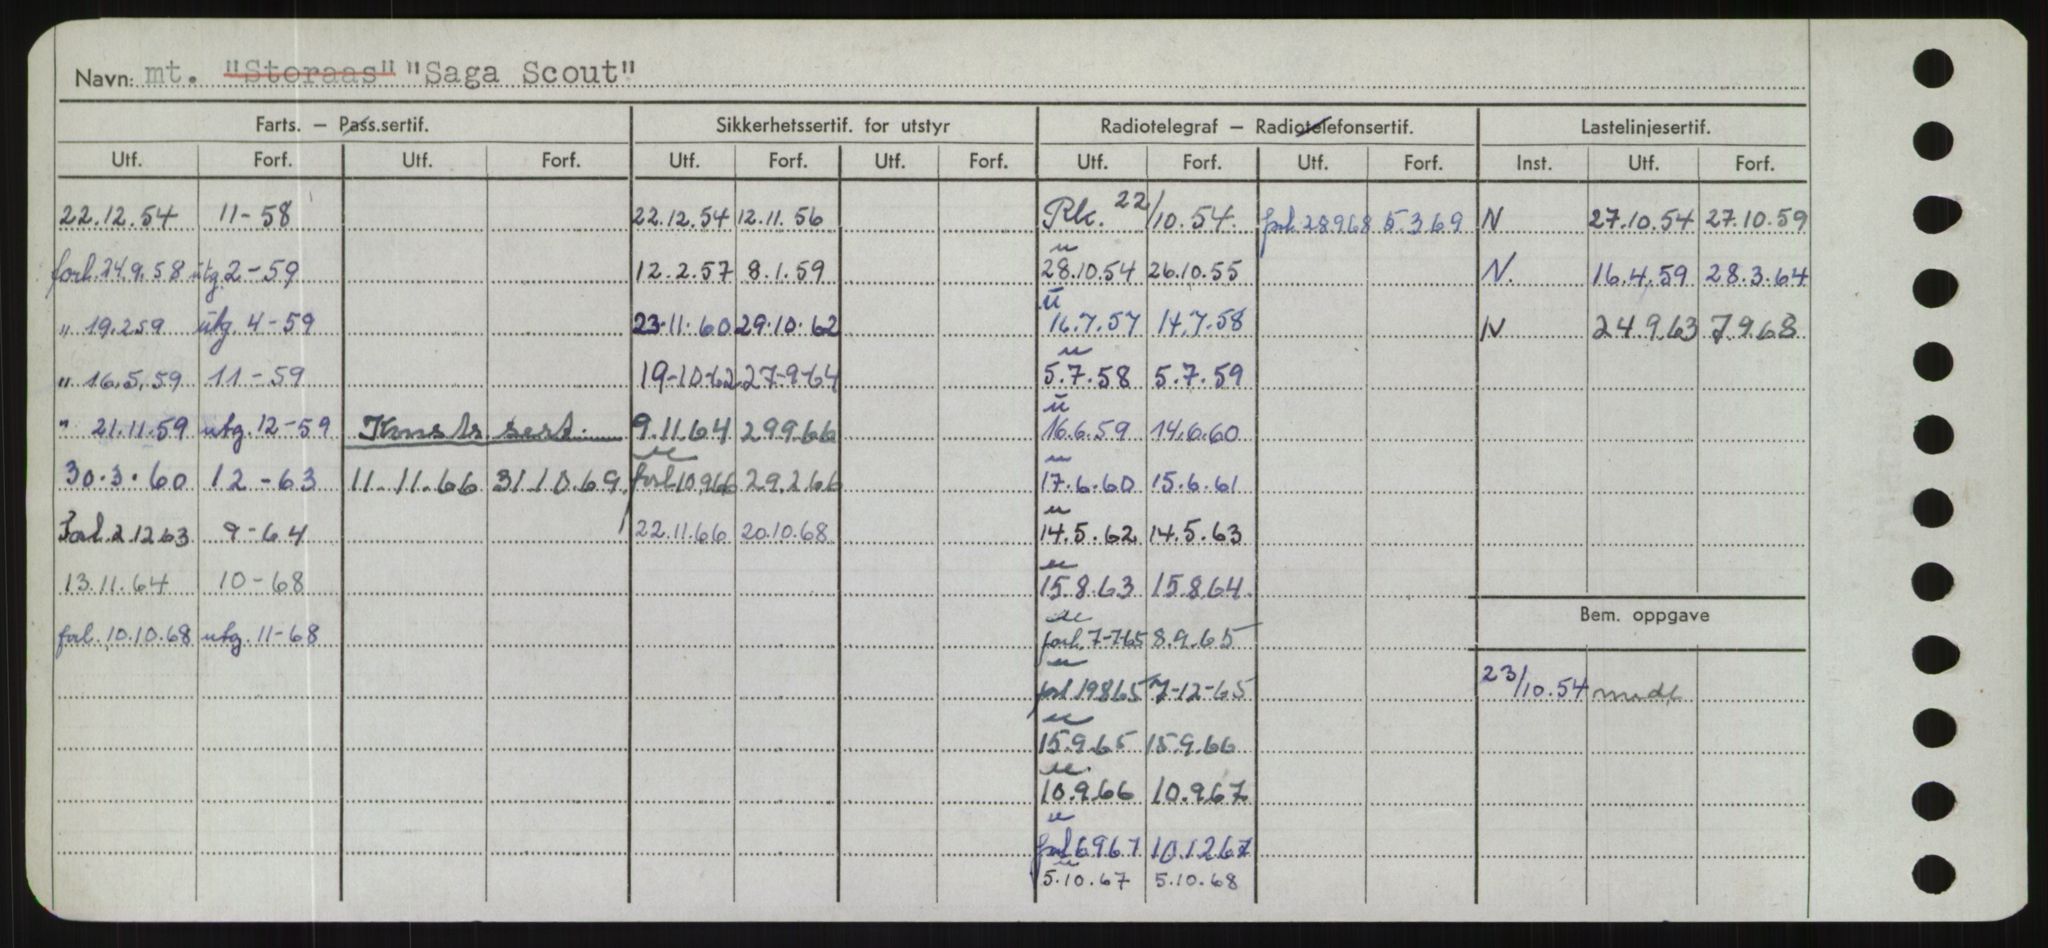 Navn: mt. "Storaas" "Saga Scout"
Farts. – Pass.sertif. Sikkerhetssertif. for utstyr Radiotelegraf – Radiotelefonsertif. Lastelinjesertif.
Utf. Forf. Utf. Forf. Utf. Forf. Utf. Forf. Utf. Forf. Utf. Forf. Inst. Utf. Forf.
22.12.54 11-58 22.12.54 12.11.56 Rk. 22/10.54. forl. 28968 5.3.69 N 27.10.54 27.10.59
forl. 24.9.58 utg. 2-59 12.2.57 8.1.59 u 28.10.54 26.10.55 N. 16.4.59 28.3.64
" 19.2.59 utg 4-59 23.11.60 29.10.62 u 16.7.57 14.7.58 N 24.9.63 7.9.68
" 16.5.59 11-59 19-10-62 27-9-64 u 5.7.58 5.7.59
" 21.11.59 utg. 12-59 sert. 9.11.64 29966 u 16.6.59 14.6.60
30.3.60 12-63 11.11.66 31.10.69. forl 10.9.66 29.2.66 u 17.6.60 15.6.61
Forl. 2.12.63 9-64 22.11.66 20.10.68 u 14.5.62 14.5.63
13.11.64 10-68 u 15.8.63 15.8.64
forl. 10.10.68 utg. 11-68 u forl. 7-7-65 8.9.65
Bem. oppgave
u forl 19865 7-12-65 23/10.54 mdl
u 15.9.65 15.9.66
u 10.9.66 10.9.67
u forl 6967 10.12.67
u 5.10.67 5.10.68